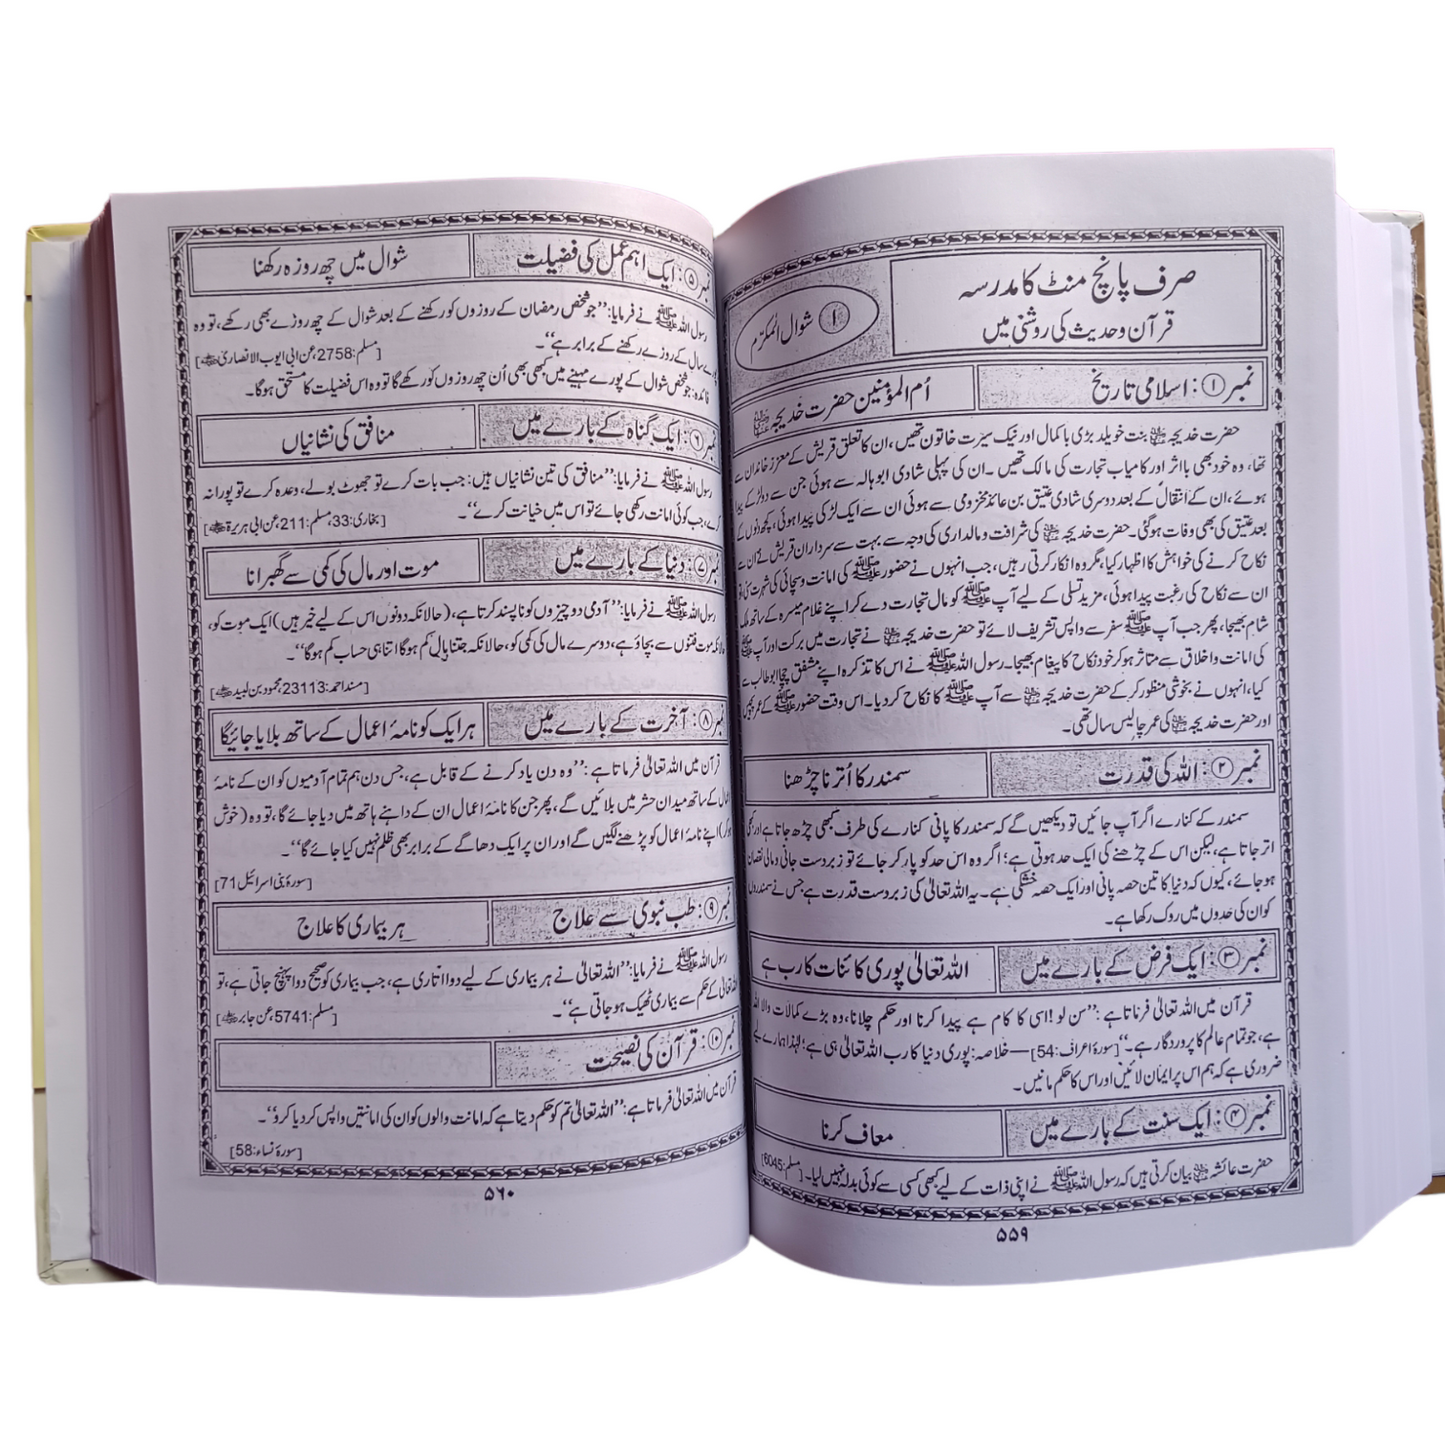 صرف پانچ منٹ کا مدرسہ
قرآن وحدیث کی روشنی میں
① شوال المکرّم
نمبر ①: اسلامی تاریخ
اُم المؤمنین حضرت خدیجہ رضی اللہ عنہا
حضرت خدیجہ رضی اللہ عنہا بنت خویلد بڑی باکمال اور نیک سیرت خاتون تھیں، ان کا تعلق قریش کے معزز خاندان سے
تھا، وہ خود بھی بااثر اور کامیاب تجارت کی مالک تھیں۔ ان کی پہلی شادی ابوہالہ سے ہوئی جن سے دو لڑکے پیدا
ہوئے، ان کے انتقال کے بعد دوسری شادی عتیق بن عائذ مخزومی سے ہوئی ان سے ایک لڑکی پیدا ہوئی، کچھ دنوں کے
بعد عتیق کی بھی وفات ہوگئی۔ حضرت خدیجہ رضی اللہ عنہا کی شرافت و مالداری کی وجہ سے بہت سے سرداران قریش نے ان سے
نکاح کرنے کی خواہش کا اظہار کیا، مگر وہ انکار کرتی رہیں، جب انہوں نے حضور ﷺ کی امانت و سچائی کی شہرت سنی تو
ان سے نکاح کی رغبت پیدا ہوئی، مزید تسلی کے لیے آپ ﷺ کو مال تجارت دے کر اپنے غلام میسرہ کے ساتھ ملک
شام بھیجا، پھر جب آپ ﷺ سفر سے واپس تشریف لائے تو حضرت خدیجہ رضی اللہ عنہا نے تجارت میں برکت اور آپ ﷺ
کی امانت و اخلاق سے متاثر ہوکر خود نکاح کا پیغام بھیجا۔ رسول اللہ ﷺ نے اس کا تذکرہ اپنے مشفق چچا ابوطالب سے
کیا، انہوں نے بخوشی منظور کرکے حضرت خدیجہ رضی اللہ عنہا سے آپ ﷺ کا نکاح کردیا۔ اس وقت حضور ﷺ کے عمر پچیس
اور حضرت خدیجہ رضی اللہ عنہا کی عمر چالیس سال تھی۔
نمبر ②: اللہ کی قدرت
سمندر کا اُترنا چڑھنا
سمندر کے کنارے اگر آپ جائیں تو دیکھیں گے کہ سمندر کا پانی کنارے کی طرف کبھی چڑھ جاتا ہے اور کبھی
اتر جاتا ہے، لیکن اس کے چڑھنے کی ایک حد ہوتی ہے؛ اگر وہ اس حد کو پار کر جائے تو زبردست جانی و مالی نقصان
ہوجائے، کیوں کہ دنیا کا تین حصہ پانی اور ایک حصہ خشکی ہے۔ یہ اللہ تعالیٰ کی زبردست قدرت ہے جس نے سمندروں
کو ان کی حدوں میں روک رکھا ہے۔
نمبر ③: ایک فرض کے بارے میں
اللہ تعالیٰ پوری کائنات کا رب ہے
قرآن میں اللہ تعالیٰ فرماتا ہے: ”سن لو! اسی کا کام ہے پیدا کرنا اور حکم چلانا، وہ بڑے کمالات والا اللہ
ہے، جو تمام عالم کا پروردگار ہے۔“ [سورۂ اعراف: 54] — خلاصہ: پوری دنیا کا رب اللہ تعالیٰ ہی ہے؛ لہٰذا ہمارے لیے
ضروری ہے کہ ہم اس پر ایمان لائیں اور اس کا حکم مانیں۔
نمبر ④: ایک سنت کے بارے میں
معاف کرنا
حضرت عائشہ رضی اللہ عنہا بیان کرتی ہیں کہ رسول اللہ ﷺ نے اپنی ذات کے لیے کبھی کسی سے کوئی بدلہ نہیں لیا۔ [مسلم: 6045]
۵۵۹
نمبر ⑤: ایک اہم عمل کی فضیلت
شوال میں چھ روزہ رکھنا
رسول اللہ ﷺ نے فرمایا: ”جو شخص رمضان کے روزوں کو رکھنے کے بعد شوال کے چھ روزے بھی رکھے، تو وہ
پورے سال کے روزے رکھنے کے برابر ہے“۔
[مسلم: 2758، عن ابی ایوب الانصاری رضی اللہ عنہ]
فائدہ: جو شخص شوال کے پورے مہینے میں کبھی بھی اُن چھ روزوں کو رکھے گا تو وہ اس فضیلت کا مستحق ہوگا۔
نمبر ⑥: ایک گناہ کے بارے میں
منافق کی نشانیاں
رسول اللہ ﷺ نے فرمایا: ”منافق کی تین نشانیاں ہیں: جب بات کرے تو جھوٹ بولے، وعدہ کرے تو پورا نہ
کرے، جب کوئی امانت رکھی جائے تو اس میں خیانت کرے“۔
[بخاری: 33، مسلم: 211، عن ابی ہریرۃ رضی اللہ عنہ]
نمبر ⑦: دنیا کے بارے میں
موت اور مال کی کمی سے گھبرانا
رسول اللہ ﷺ نے فرمایا: ”آدمی دو چیزوں کو ناپسند کرتا ہے، (حالانکہ دونوں اس کے لیے خیر ہیں) ایک موت کو،
حالانکہ موت فتنوں سے بچاؤ ہے، دوسرے مال کی کمی کو، حالانکہ جتنا مال کم ہوگا اتنا ہی حساب کم ہوگا“۔
[مسند احمد: 23113، محمود بن لبید رضی اللہ عنہ]
نمبر ⑧: آخرت کے بارے میں
ہر ایک کو نامۂ اعمال کے ساتھ بلایا جائیگا
قرآن میں اللہ تعالیٰ فرماتا ہے: ”وہ دن یاد کرنے کے قابل ہے، جس دن ہم تمام آدمیوں کو ان کے نامۂ
اعمال کے ساتھ میدان حشر میں بلائیں گے، پھر جن کا نامۂ اعمال ان کے داہنے ہاتھ میں دیا جائے گا، تو وہ (خوش
ہوکر) اپنے نامۂ اعمال کو پڑھنے لگیں گے اور ان پر ایک دھاگے کے برابر بھی ظلم نہیں کیا جائے گا“۔
[سورۂ بنی اسرائیل 71]
نمبر ⑨: طب نبوی سے علاج
ہر بیماری کا علاج
رسول اللہ ﷺ نے فرمایا: ”اللہ تعالیٰ نے ہر بیماری کے لیے دوا اتاری ہے، جب بیماری کو صحیح دوا پہنچ جاتی ہے، تو
اللہ تعالیٰ کے حکم سے بیماری ٹھیک ہوجاتی ہے“۔
[مسلم: 5741، عن جابر رضی اللہ عنہ]
نمبر ⑩: قرآن کی نصیحت
قرآن میں اللہ تعالیٰ فرماتا ہے: ”اللہ تعالیٰ تم کو حکم دیتا ہے کہ امانت والوں کو ان کی امانتیں واپس کردیا کرو“۔
[سورۂ نساء: 58]
۵۶۰